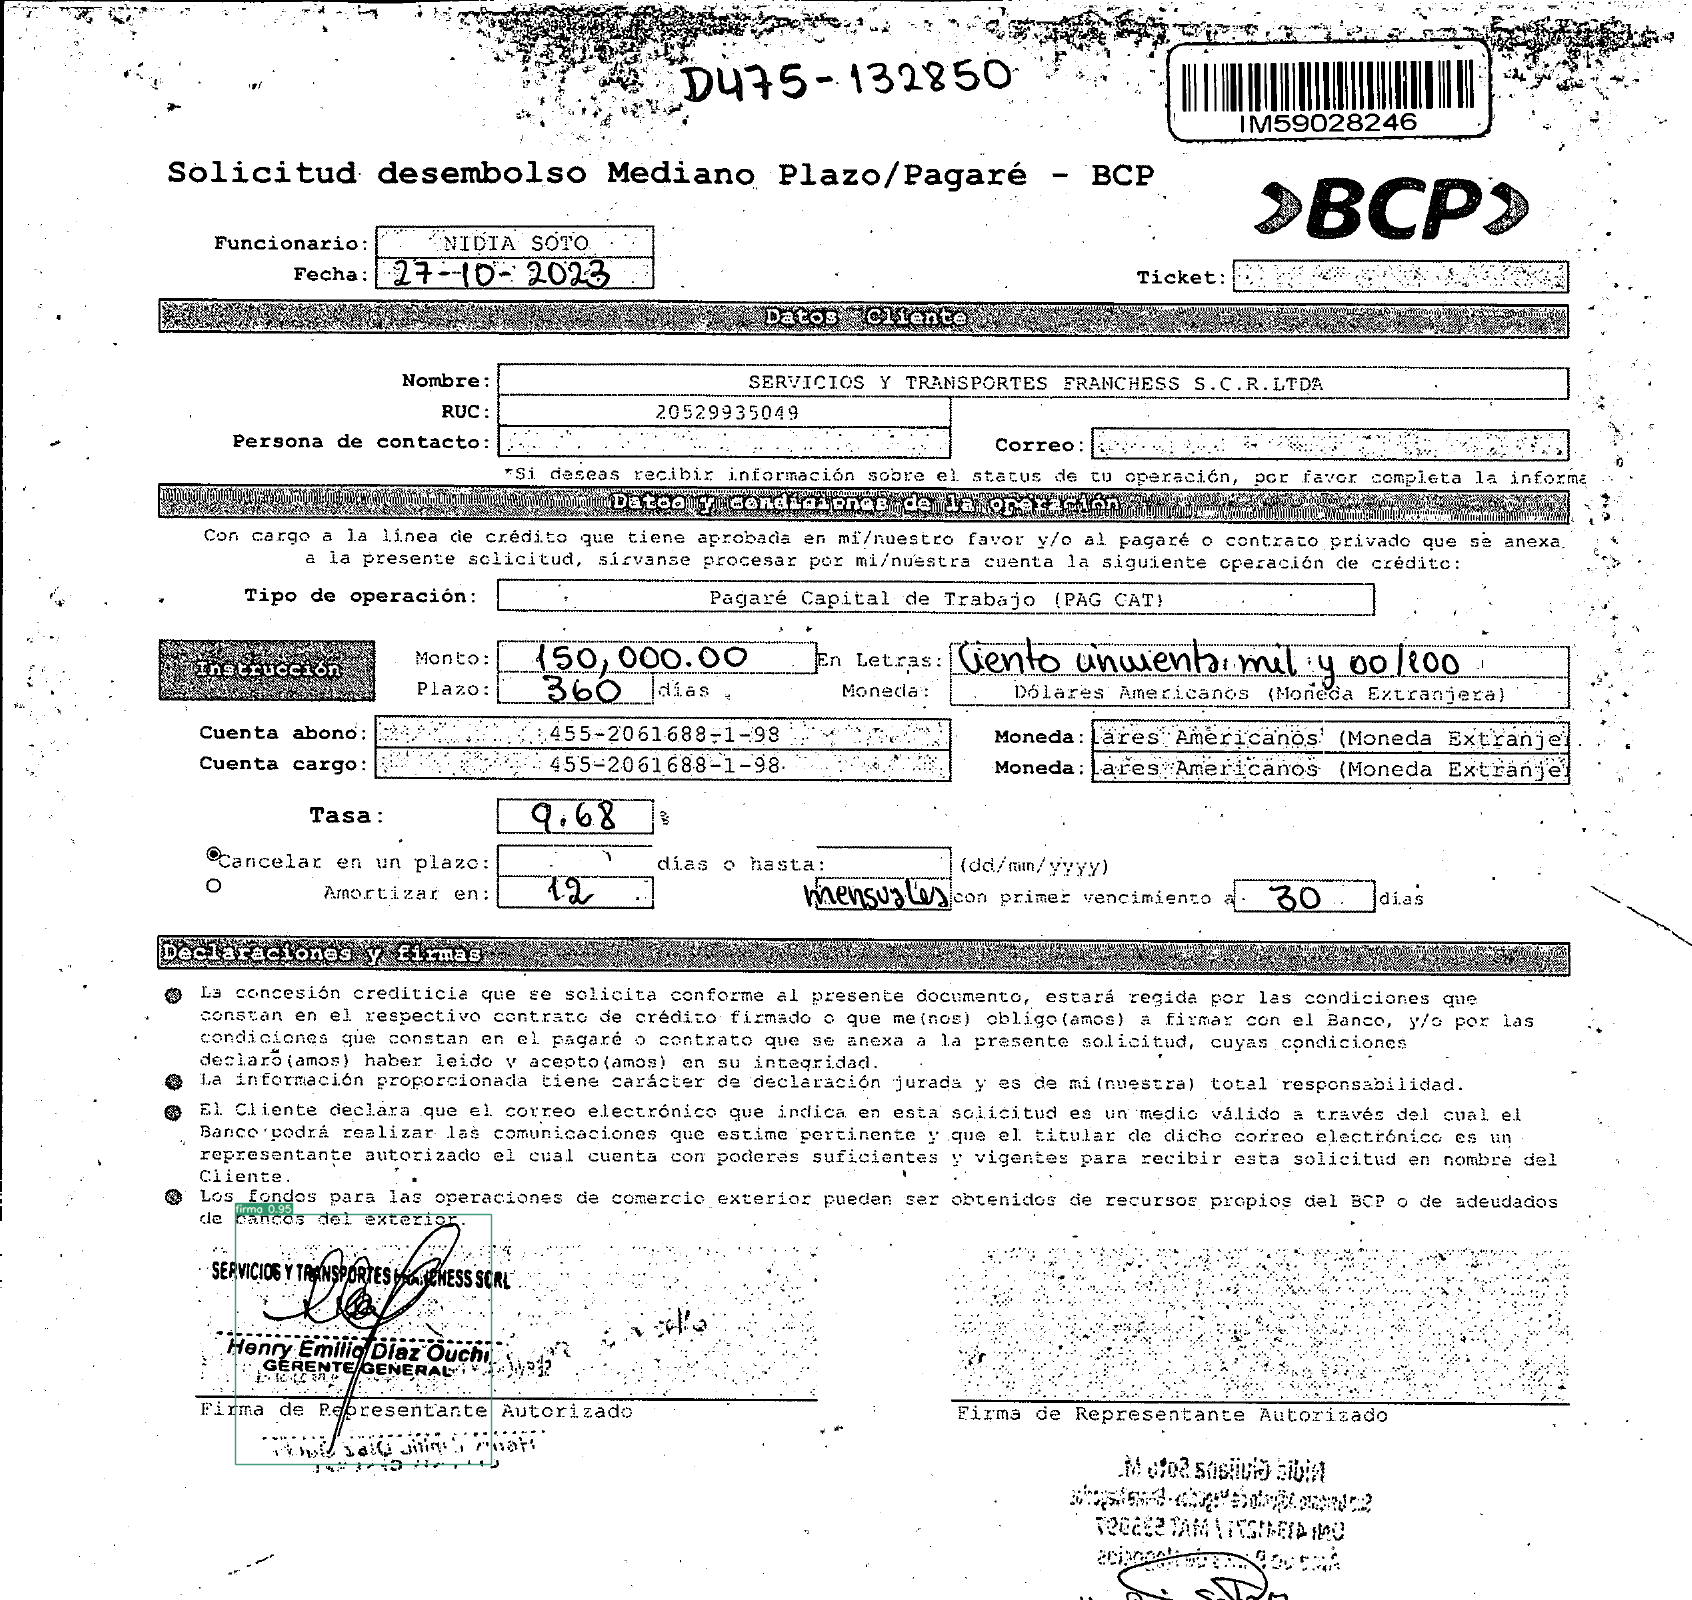 D475-132850
IM59028246
Solicitud desembolso Mediano Plazo/Pagaré - BCP
BCP
Funcionario: NIDIA SOTO
Fecha: 27-10-2023
Ticket:
Datos Cliente
Nombre: SERVICIOS Y TRANSPORTES FRANCHESS S.C.R.LTDA
RUC: 20529935049
Persona de contacto: Correo:
*Si deseas recibir información sobre el status de tu operación, por favor completa la informa
Datos y condiciones de la operación
Con cargo a la línea de crédito que tiene aprobada en mi/nuestro favor y/o al pagaré o contrato privado que se anexa
a la presente solicitud, sírvanse procesar por mi/nuestra cuenta la siguiente operación de crédito:
Tipo de operación: Pagaré Capital de Trabajo (PAG CAT)
Instrucción
Monto: 150,000.00 En Letras: Ciento cincuenta mil y 00/100
Plazo: 360 días Moneda: Dólares Americanos (Moneda Extranjera)
Cuenta abono: 455-2061688-1-98 Moneda: lares Americanos (Moneda Extranje
Cuenta cargo: 455-2061688-1-98 Moneda: lares Americanos (Moneda Extranje
Tasa: 9.68 %
Cancelar en un plazo: días o hasta: (dd/mm/yyyy)
Amortizar en: 12 mensuales con primer vencimiento a 30 días
Declaraciones y firmas
La concesión crediticia que se solicita conforme al presente documento, estará regida por las condiciones que
constan en el respectivo contrato de crédito firmado o que me(nos) obligo(amos) a firmar con el Banco, y/o por las
condiciones que constan en el pagaré o contrato que se anexa a la presente solicitud, cuyas condiciones
declaro(amos) haber leido y acepto(amos) en su integridad.
La información proporcionada tiene carácter de declaración jurada y es de mi(nuestra) total responsabilidad.
El Cliente declara que el correo electrónico que indica en esta solicitud es un medio válido a través del cual el
Banco podrá realizar las comunicaciones que estime pertinente y que el titular de dicho correo electrónico es un
representante autorizado el cual cuenta con poderes suficientes y vigentes para recibir esta solicitud en nombre del
Cliente.
Los fondos para las operaciones de comercio exterior pueden ser obtenidos de recursos propios del BCP o de adeudados
de bancos del exterior.
firma 0.95
SERVICIOS Y TRANSPORTES FRANCHESS SCRL
Henry Emilio Diaz Ouchi
GERENTE GENERAL
Firma de Representante Autorizado
Firma de Representante Autorizado
Nidia Giuliana Soto M.